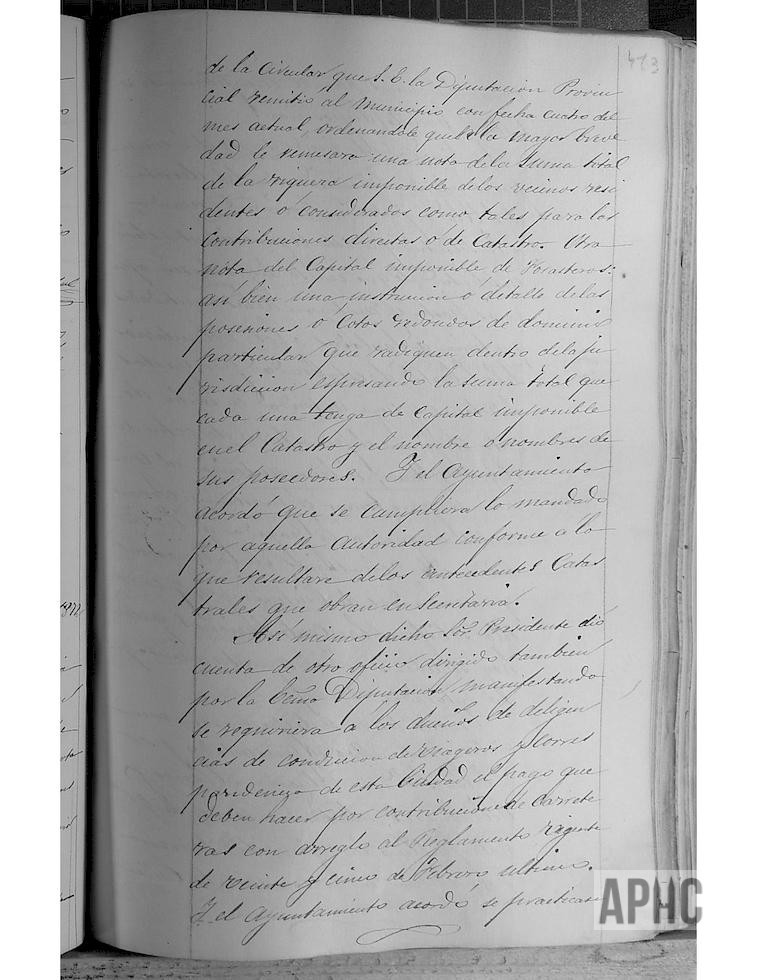 473
de la Circular que S. E. la Diputacion Provin
cial remitió al Municipio con fecha cuatro del
mes actual, ordenandole que a la mayor breve
dad le remesara una nota de la suma total
de la riqueza imponible de los vecinos resi
dentes ó considerados como tales para las
Contribuciones directas ó de Catastro. Otra
nota del Capital imponible de Forasteros:
asi bien una instrucion ó detalle de las
posesiones ó Cotos redondos de dominio
particular que radiquen dentro de la ju
risdiccion espresando la suma total que
cada una tenga de Capital imponible
en el Catastro y el nombre ó nombres de
sus poseedores. Y el Ayuntamiento
acordó que se cumpliera lo mandado
por aquella Autoridad conforme a lo
que resultare de los antecedentes Catas
trales que obran en Secretaria.
Asi mismo dicho Sor. Presidente dió
cuenta de otro oficio dirigido tambien
por la Ecma Diputacion manifestando
se requiriera a los dueños de deligen
cias de conduccion de viageros y corres
pondencia de esta Ciudad el pago que
deben hacer por contribucion de Carrete
ras con arreglo al Reglamento vigente
de veinte y cinco de Febrero ultimo.
Y el Ayuntamiento acordó se practicase
APHC